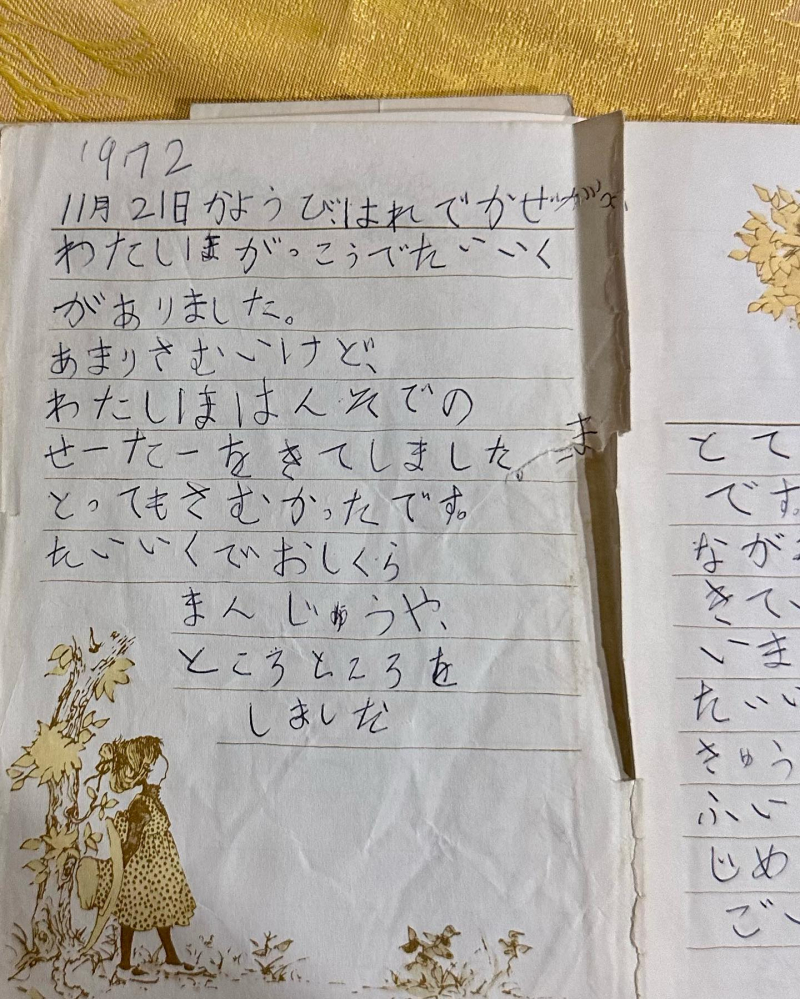 1972
11月21日かようび、はれでかぜが
わたしはがっこうでたいいく
がありました。
あまりさむいけど、
わたしははんそでの
せーたーをきてしました。
ま
とってもさむかったです。
たいいくでおしくら
まんじゅうや、
ところところを
しました
とて
です。
なが
きてい
いま
たいい
きゅう
ふい
じめ
ご